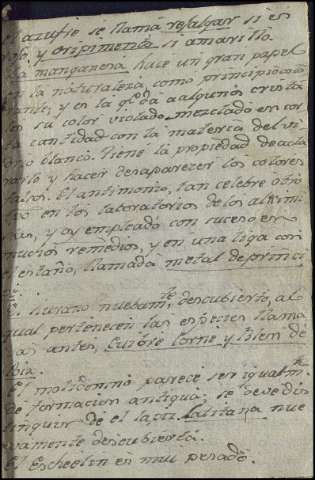 el azufre se llama rejalgar si es
rojo, y oripimento si amarillo.
La manganesa hace un gran papel
en la naturaleza, como principio co
lorante; y es la qᵉ da a algunos crista
les su color violado. mezclada en cor
ta cantidad con la materia del vi
drio blanco. tiene la propiedad de acla
rarlo y hacer desaparecer los colores
falsos. El antimonio, tan celebre otro
tpo en los laboratorios de los alkimis
tas, y oy empleado con suceso en
muchos remedios, y en una liga con
el estaño, llamada metal de princi
pe.
El urano nuebamᵗᵉ descubierto, al
qual pertenecen las especies llama
das antes, Cuibre corne y Blen de
Bia.
El molibdeno parece ser igualmᵗᵉ
de formacion antigua; se deve dis
tinguir de el lapiz Lalitana nue
vamente descubierta.
El Escheelin es mui pesado.